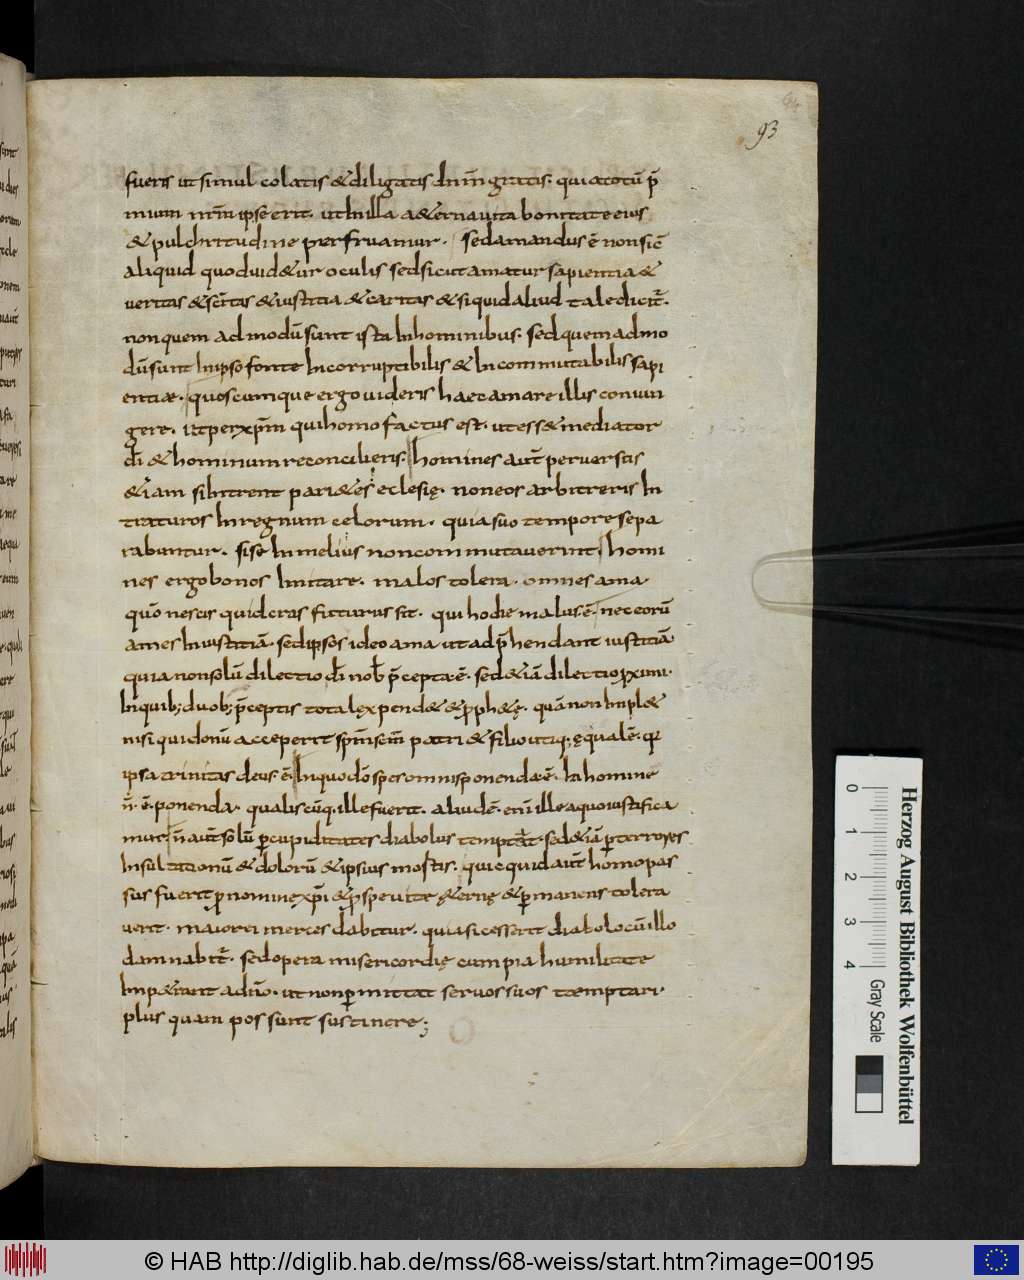 93
fueris ut simul colatis & diligatis dnm̄ gratis. quia totū p̄
mium nrm̄ ipse erit. ut In illa a&erna uita bonitate eius
& pulchritudine perfruamur. Sed amandus ē non sic̄
aliquid quod uid&ur oculis sed sicut amatur sapientia &
ueritas & sc̄itas & iustitia & caritas & siquid aliud tale dicit̄.
non quem ad modū sunt ista In hominibus. sed quem ad mo
dū sunt In ipso fonte Incorruptibilis & Incommutabilis sapi
entiae. quoscumque ergo uideris haec amare illis coniun
gere. ut per xp̄m qui homo factus est. ut ess& mediator
dī & hominum reconcilieris. homines aut̄ peruersos
&iam si Intrent pari&es eclesię. non eos arbitreris In
traturos In regnum celorum. quia suo tempore sepa
rabuntur. si se In melius non commutauerint. homi
nes ergo bonos Imitare. malos tolera. omnes ama.
quō nescis quid cras futurus sit. qui hodie malus ē. nec eorū
ames Iniustitiā. sed ipsos ideo ama ut adp̄hendant iustitiā
quia non solū dilectio dī nob̄ p̄cepta ē. sed &iā dilectio p̱ximi.
In quib; duob; p̄ceptis tota lęx pend& & p̱ph&ę. quā non Impl&
nisi qui donū acceperit spm̄ scm̄ patri & filio utiq; ęqualē. qr
ipsa trinitas deus ē. In quo dō spes omnis ponenda ē. In homine
n̄ ē ponenda. qualiscūq. ille fuerit. aliud ē. eni ille a quo iustifica
mur. n̄ aut̄ solū p̱ cupiditates diabolus temptat. sed &iā p̱ terrores
Insultationū & dolorū & ipsius mortis. quicquid aut̄ homo pas
sus fuerit p̱ nomine xp̄i & p̱ spe uitae ę&ernę & p̱manens tolera
uerit. maior ei merces dabitur. quia si cesserit diabolo cū illo
damnabit̄. sed opera misericordię cum pia humilitate
Imp&rant a dn̄o. ut non p̱mittat seruos suos temptari.
plus quam possunt sustinere;
Herzog August Bibliothek Wolfenbüttel
0 1 2 3 4 Gray Scale
© HAB http://diglib.hab.de/mss/68-weiss/start.htm?image=00195